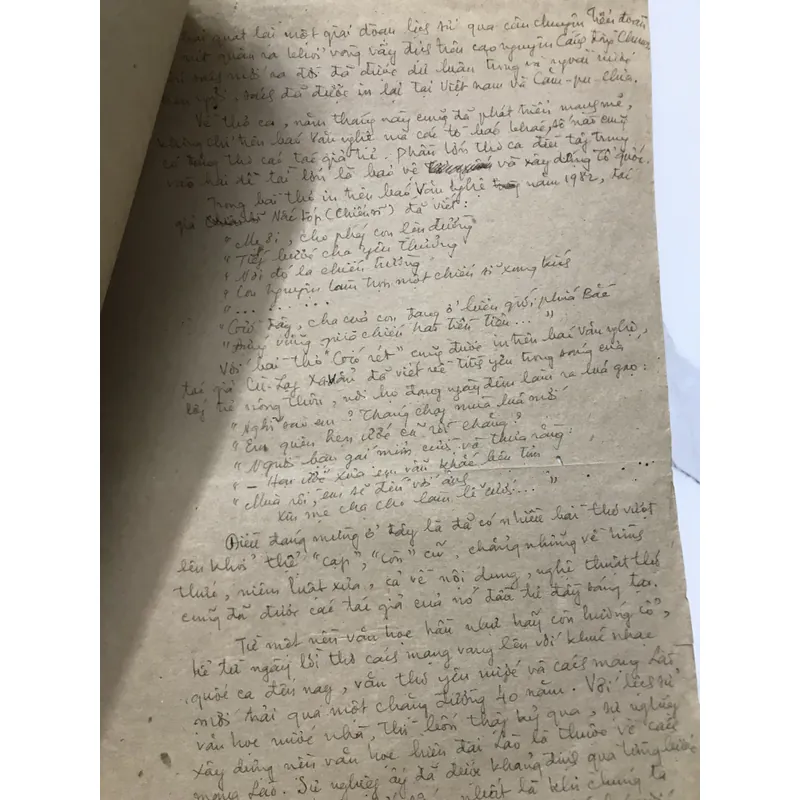 quát lại một giai đoạn lịch sử qua câu chuyện tiểu đoàn
rút quân ra khỏi vòng vây địch trên cao nguyên Cánh Đồng Chum
ra đời đã được dư luận trong và ngoài nước
sách đã được in lại tại Việt nam và Căm-pu-chia.
Về thơ ca, năm tháng này cũng đã phát triển mạnh mẽ,
không chỉ trên báo Văn nghệ mà các tờ báo khác, số nào cũng
có thơ các tác giả trẻ. Phần lớn thơ ca đều tập trung
vào hai đề tài lớn là bảo vệ và xây dựng Tổ quốc.
Trong bài thơ in trên báo Văn Nghệ năm 1982, tác
giả (Chiến sĩ) đã viết:
"Mẹ ơi, cho phép con lên đường
"Tiếp bước cha yêu thương
"Nơi đó là chiến trường
"Con nguyện làm trọn một chiến sĩ xung kích
"... ... ...
"Giờ đây, cha của con đang ở biên giới phía Bắc
"Đứng vững giữa chiến hào tiền tiêu..."
Với bài thơ "Gió rét" cũng được in trên báo Văn nghệ,
tác giả đã viết về tình yêu trong sáng của
lớp trẻ nông thôn, nơi họ đang ngày đêm làm ra lúa gạo:
"Nghĩ sao em? Tháng chạp mùa lúa mới
"Em quên hẹn ước cũ rồi chăng?
"Người bạn gái mỉm cười và thưa rằng:
"- Hẹn ước xưa em vẫn khắc bên tim
"Mùa rồi, em sẽ đến với anh
Xin mẹ cha cho làm lễ cưới..."
Điều đáng mừng ở đây là đã có nhiều bài thơ vượt
lên khỏi thể "cạp", "con" cũ, chẳng những về hình
thức, niêm luật xưa, cả về nội dung, nghệ thuật thơ
cũng đã được các tác giả của nó đầu tư đầy sáng tạo.
Từ một nền văn học hầu như hãy còn hướng cổ,
kể từ ngày lời thơ cách mạng vang lên với khúc nhạc
quốc ca đến nay, văn thơ yêu nước và cách mạng Lào,
mới trải qua một chặng đường 40 năm. Với lịch sử
văn học nước nhà, thì bốn thập kỷ qua, sự nghiệp
xây dựng nền văn học hiện đại Lào là thuộc về cách
mạng Lào. Sự nghiệp ấy đã được khẳng định qua từng bước
nhất là khi chúng ta